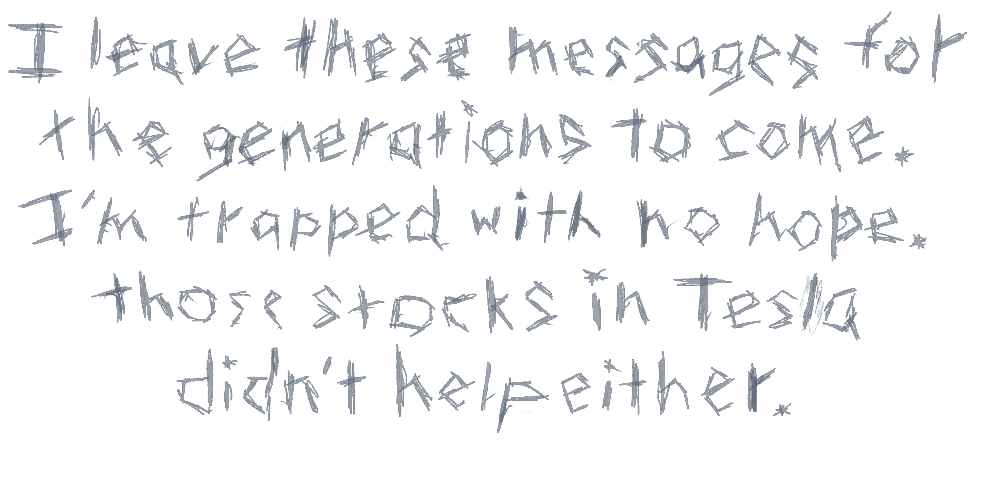 I leave these messages for
the generations to come.
I'm trapped with no hope.
those stocks in Tesla
didn't help either.